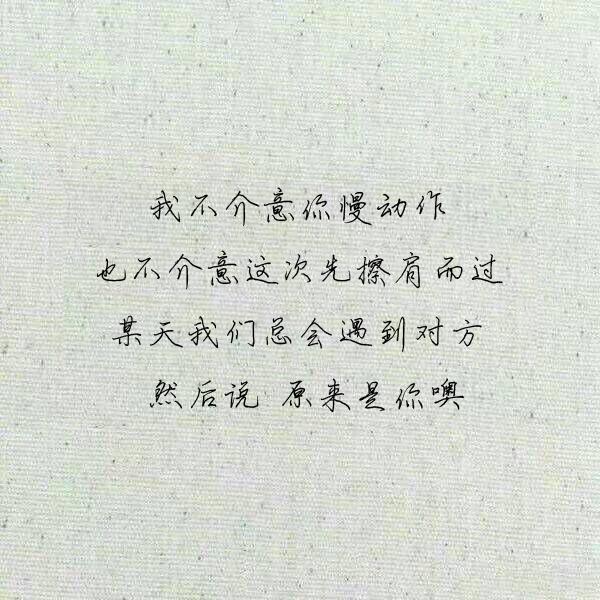 我不介意你慢动作
也不介意这次先擦肩而过
某天我们总会遇到对方
然后说 原来是你噢